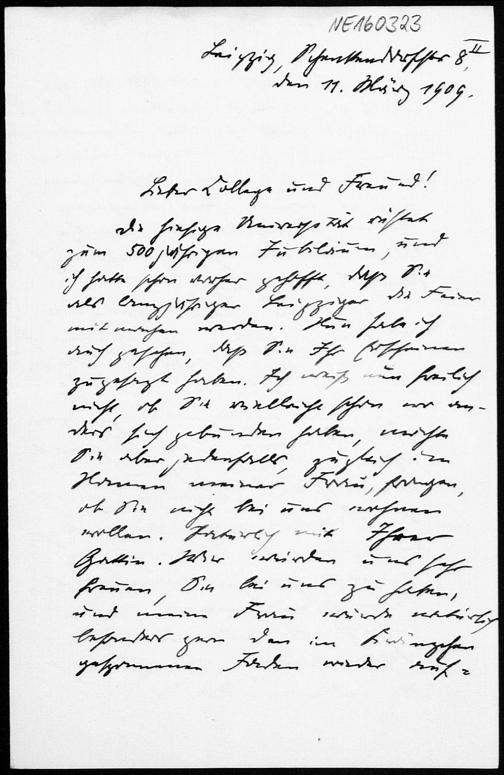 NE160323
Leipzig, Schenkendorfstr 8 II,
den 11. März 1909.
Lieber College und Freund!
die hiesige Universität rüstet
zum 500 jährigen Jubiläum, und
ich hatte schon vorher gehofft, daß Sie
als langjähriger Leipziger die Feier
mitmachen werden. Nun habe ich
auch gesehen, daß Sie Ihr Erscheinen
zugesagt haben. Ich weiß nun freilich
nicht, ob Sie vielleicht schon wo an-
ders sich gebunden haben, möchte
Sie aber jedenfalls, zugleich im
Namen meiner Frau, fragen,
ob Sie nicht bei uns wohnen
wollen. Natürlich mit Ihrer
Gattin. Wir würden uns sehr
freuen, Sie bei uns zu haben,
und meine Frau würde natürlich
besonders gern den im
gesponnenen Faden wieder auf-